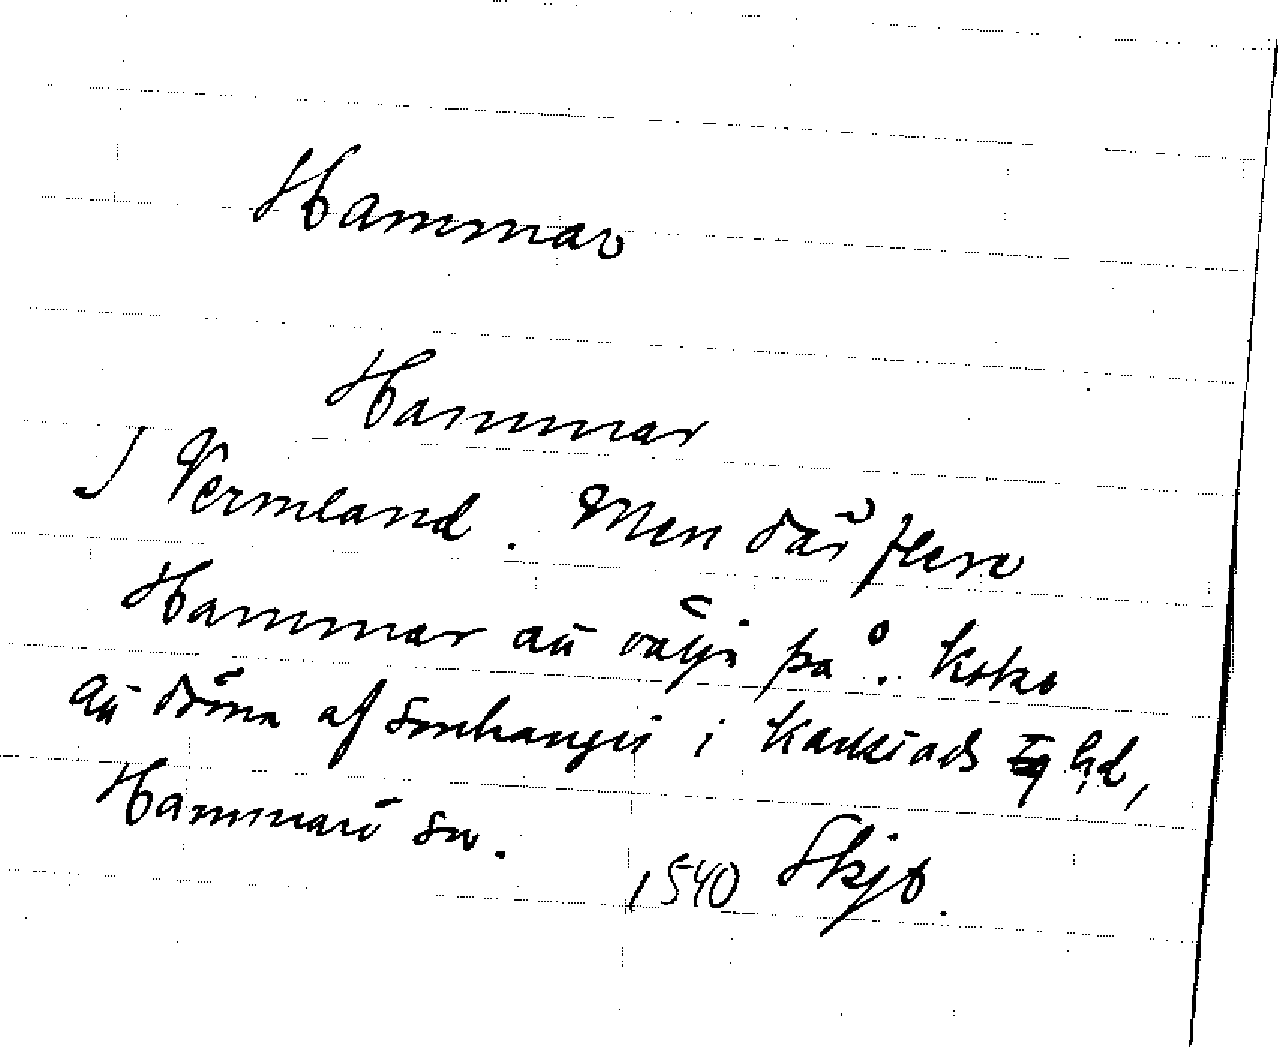 Hammar
Hammar
I Vermland. Men där flere
Hammar att välja på.
att döma af i Karlstads hd,
Hammarö sn.
1540 Skjb.